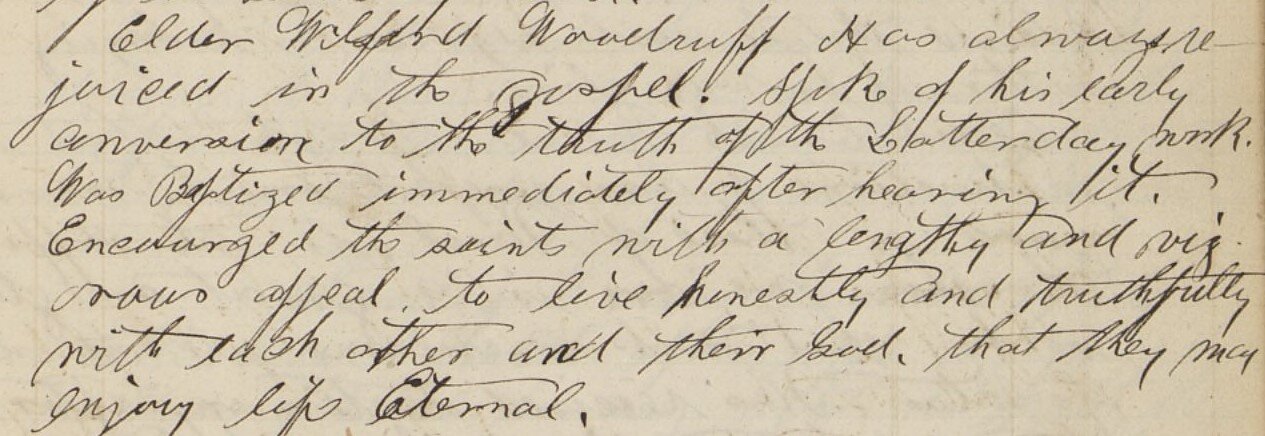 Elder Wilford Woodruff Has always re-
joiced in the gospel. Spoke of his early
conversion to the truth of the Latterday work.
Was Baptized immediately after hearing it.
Encouraged the saints with a lengthy and vig-
orous appeal, to live honestly and truthfully
with each other and their God. that they may
enjoy life Eternal.